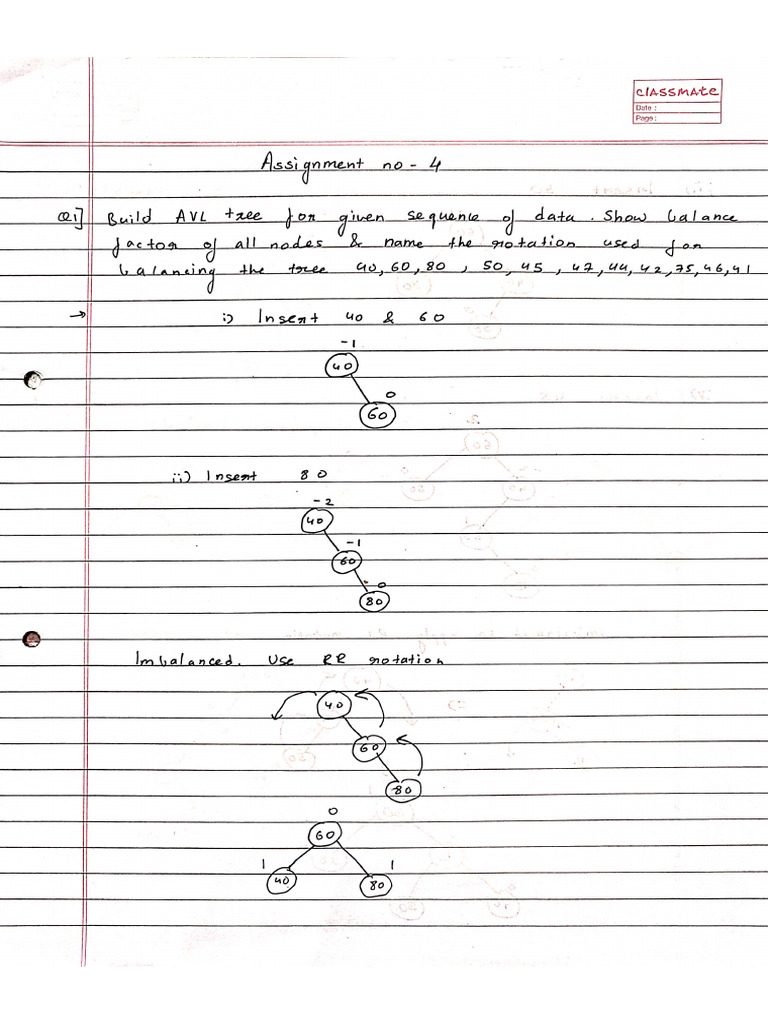 classmate
Date :
Page :
Assignment no - 4
Q1] Build AVL tree for given sequence of data. Show balance
factor of all nodes & name the rotation used for
balancing the tree 40, 60, 80, 50, 45, 47, 44, 42, 75, 46, 41
→ i) Insert 40 & 60
-1
40
0
60
ii) Insert 80
-2
40
-1
60
0
80
Imbalanced. Use RR rotation
40
60
80
0
60
1 1
40 80